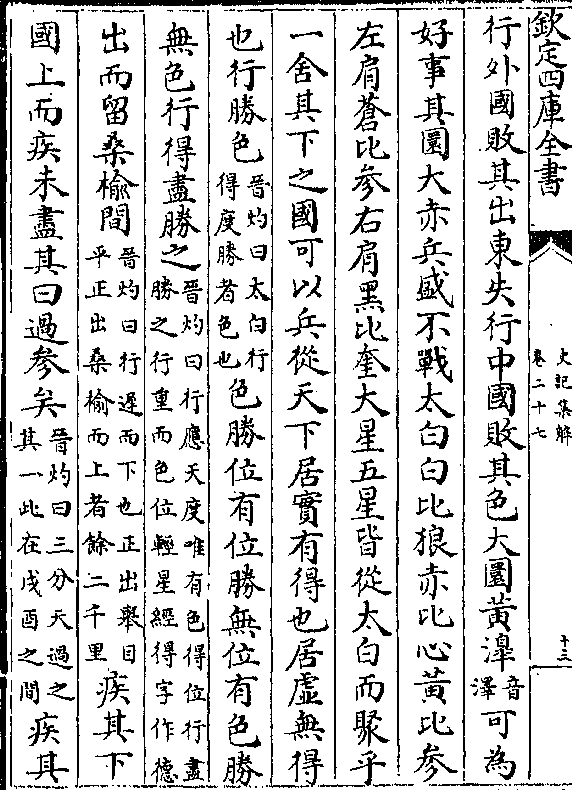 欽定四庫全書
史記集解
卷二十七
十三
行外國敗其出東失行中國敗其色大圜黃滜音澤可為
好事其圜大赤兵盛不戰太白白比狼赤比心黃比參
左肩蒼比參右肩黑比奎大星五星皆從太白而聚乎
一舍其下之國可以兵從天下居實有得也居虛無得
也行勝色晉灼曰太白行得度勝者色也色勝位有位勝無位有色勝
無色行得盡勝之晉灼曰行應天度唯有色得位行盡勝之行重而色位輕星經得字作德
出而留桑榆間晉灼曰行遲而下也正出舉目平正出桑榆而上者餘二千里疾其下
國上而疾未盡其日過參天晉灼曰三分天過之其一此在戌酉之間疾其